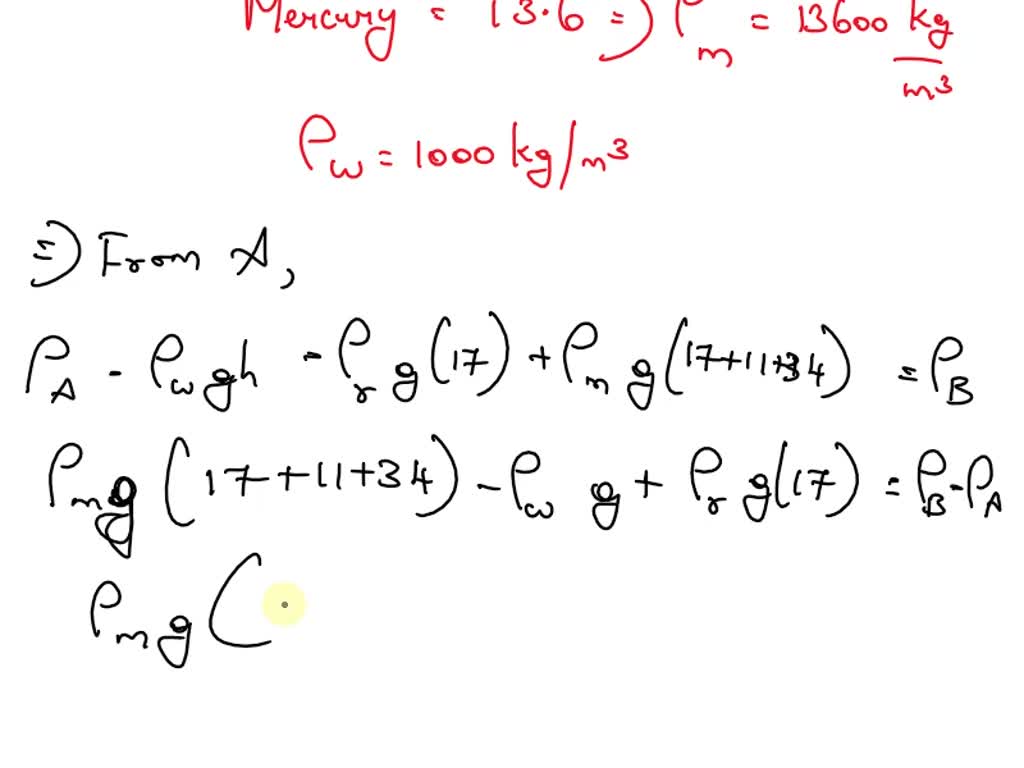 Mercury = 13.6 => ρm = 13600 kg/m³
ρw = 1000 kg/m³
=> From A,
PA - ρw gh - ρr g(17) + ρm g(17+11+34) = PB
ρm g(17+11+34) - ρw g + ρr g(17) = PB - PA
ρm g(